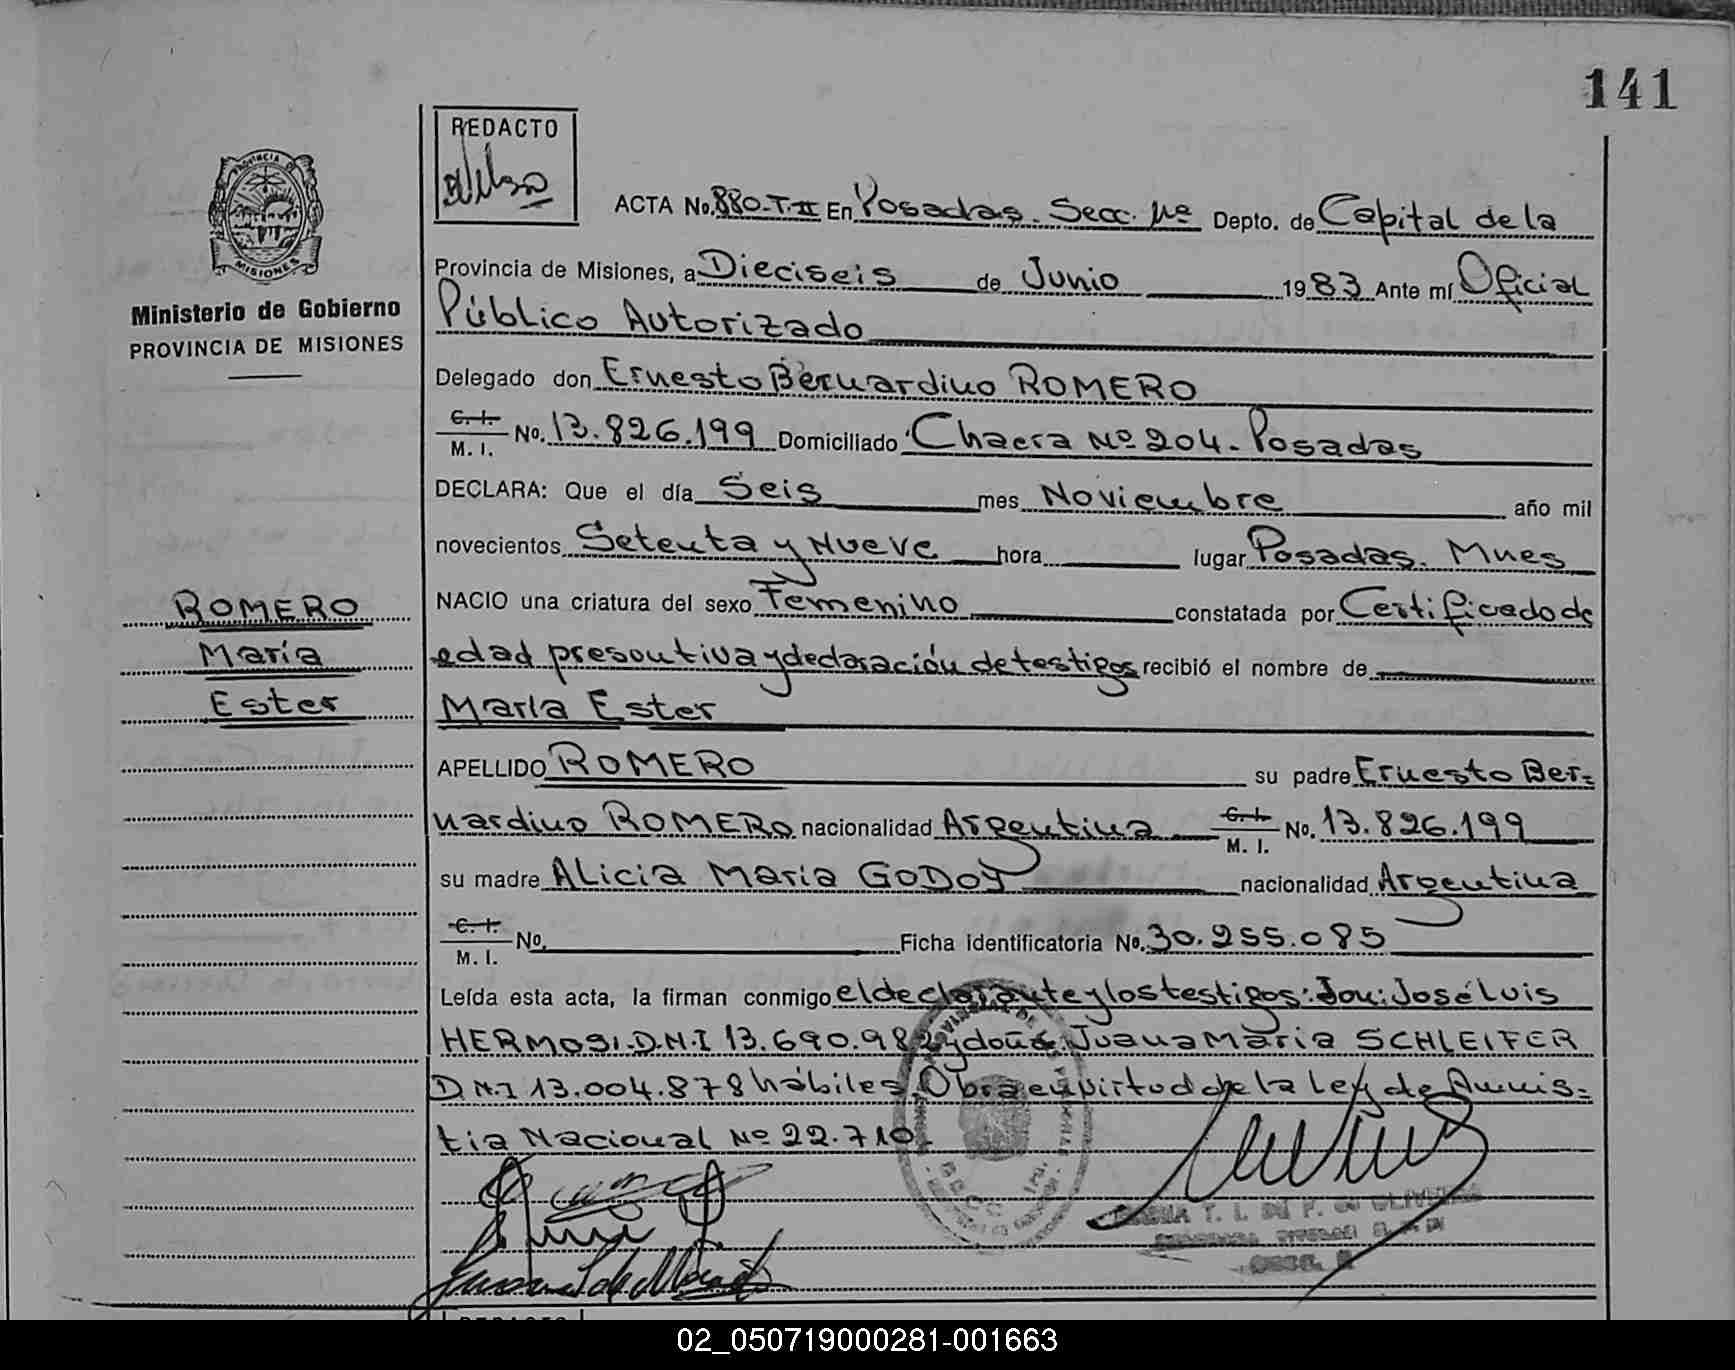 141
REDACTO
PROVINCIA DE
MISIONES
Ministerio de Gobierno
PROVINCIA DE MISIONES
ACTA No. 880-T.II En Posadas. Secc. 1ra Depto. de Capital de la
Provincia de Misiones, a Dieciseis de Junio 1983 Ante mí Oficial
Público Autorizado
Delegado don Ernesto Bernardino ROMERO
C. I. M. I. No. 13.826.199 Domiciliado Chacra Nº 204- Posadas
DECLARA: Que el día Seis mes Noviembre año mil
novecientos Setenta y Nueve hora lugar Posadas. Mnes
NACIO una criatura del sexo Femenino constatada por Certificado de
edad presuntiva y declaración de testigos recibió el nombre de
María Ester
ROMERO
María
Ester
APELLIDO ROMERO su padre Ernesto Ber=
nardino ROMERO nacionalidad Argentina C. I. M. I. No. 13.826.199
su madre Alicia Maria GODOY nacionalidad Argentina
C. I. M. I. No. Ficha Identificatoria No. 30.255.085
Leída esta acta, la firman conmigo el declarante y los testigos: Don: José Luis
HERMOSI. D.N.I 13.690.982 y doña Juana Maria SCHLEIFER
D.N.I 13.004.878 hábiles. Obra en virtud de la Ley de Amnis=
tia Nacional Nº 22.710.
02_050719000281-001663